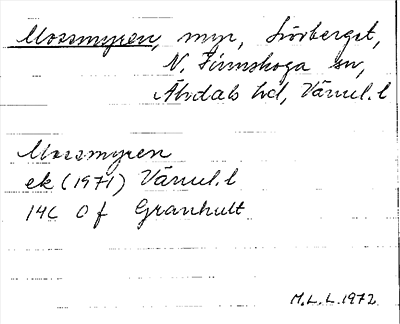 Mossmyren, myr, Lövberget,
N. Finnskoga sn,
Älvdals hd, Värml. l
Mossmyren
ek (1971) Värml. l
14c 0f Granhult
M.L.L. 1972